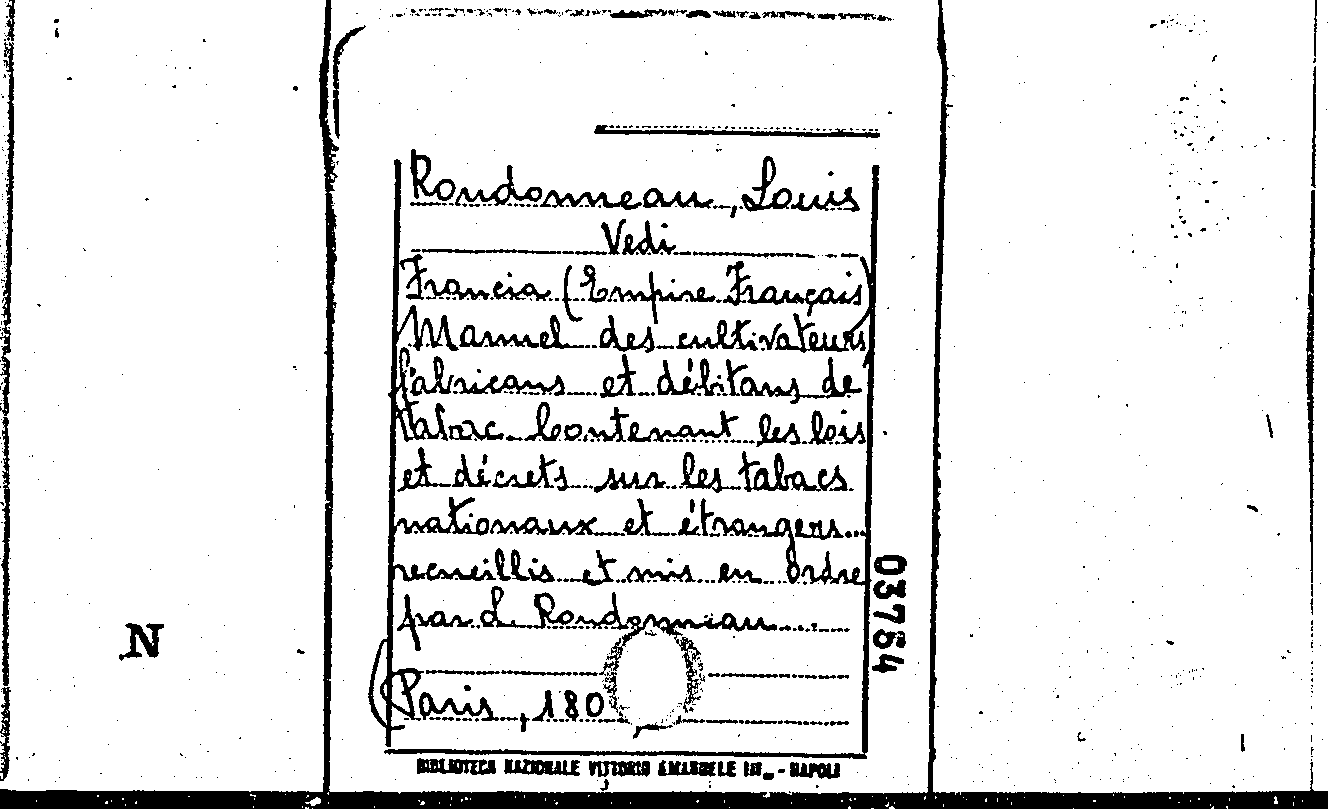 Rondonneau, Louis
Vedi
Francia (Empire Français)
Manuel des cultivateurs
fabricans et débitans de
tabac. Contenant les lois
et décrets sur les tabacs
nationaux et étrangers...
recueillis et mis en ordre
par L. Rondonneau....
Paris, 180
BIBLIOTECA NAZIONALE VITTORIO EMANUELE III - NAPOLI
03764
N